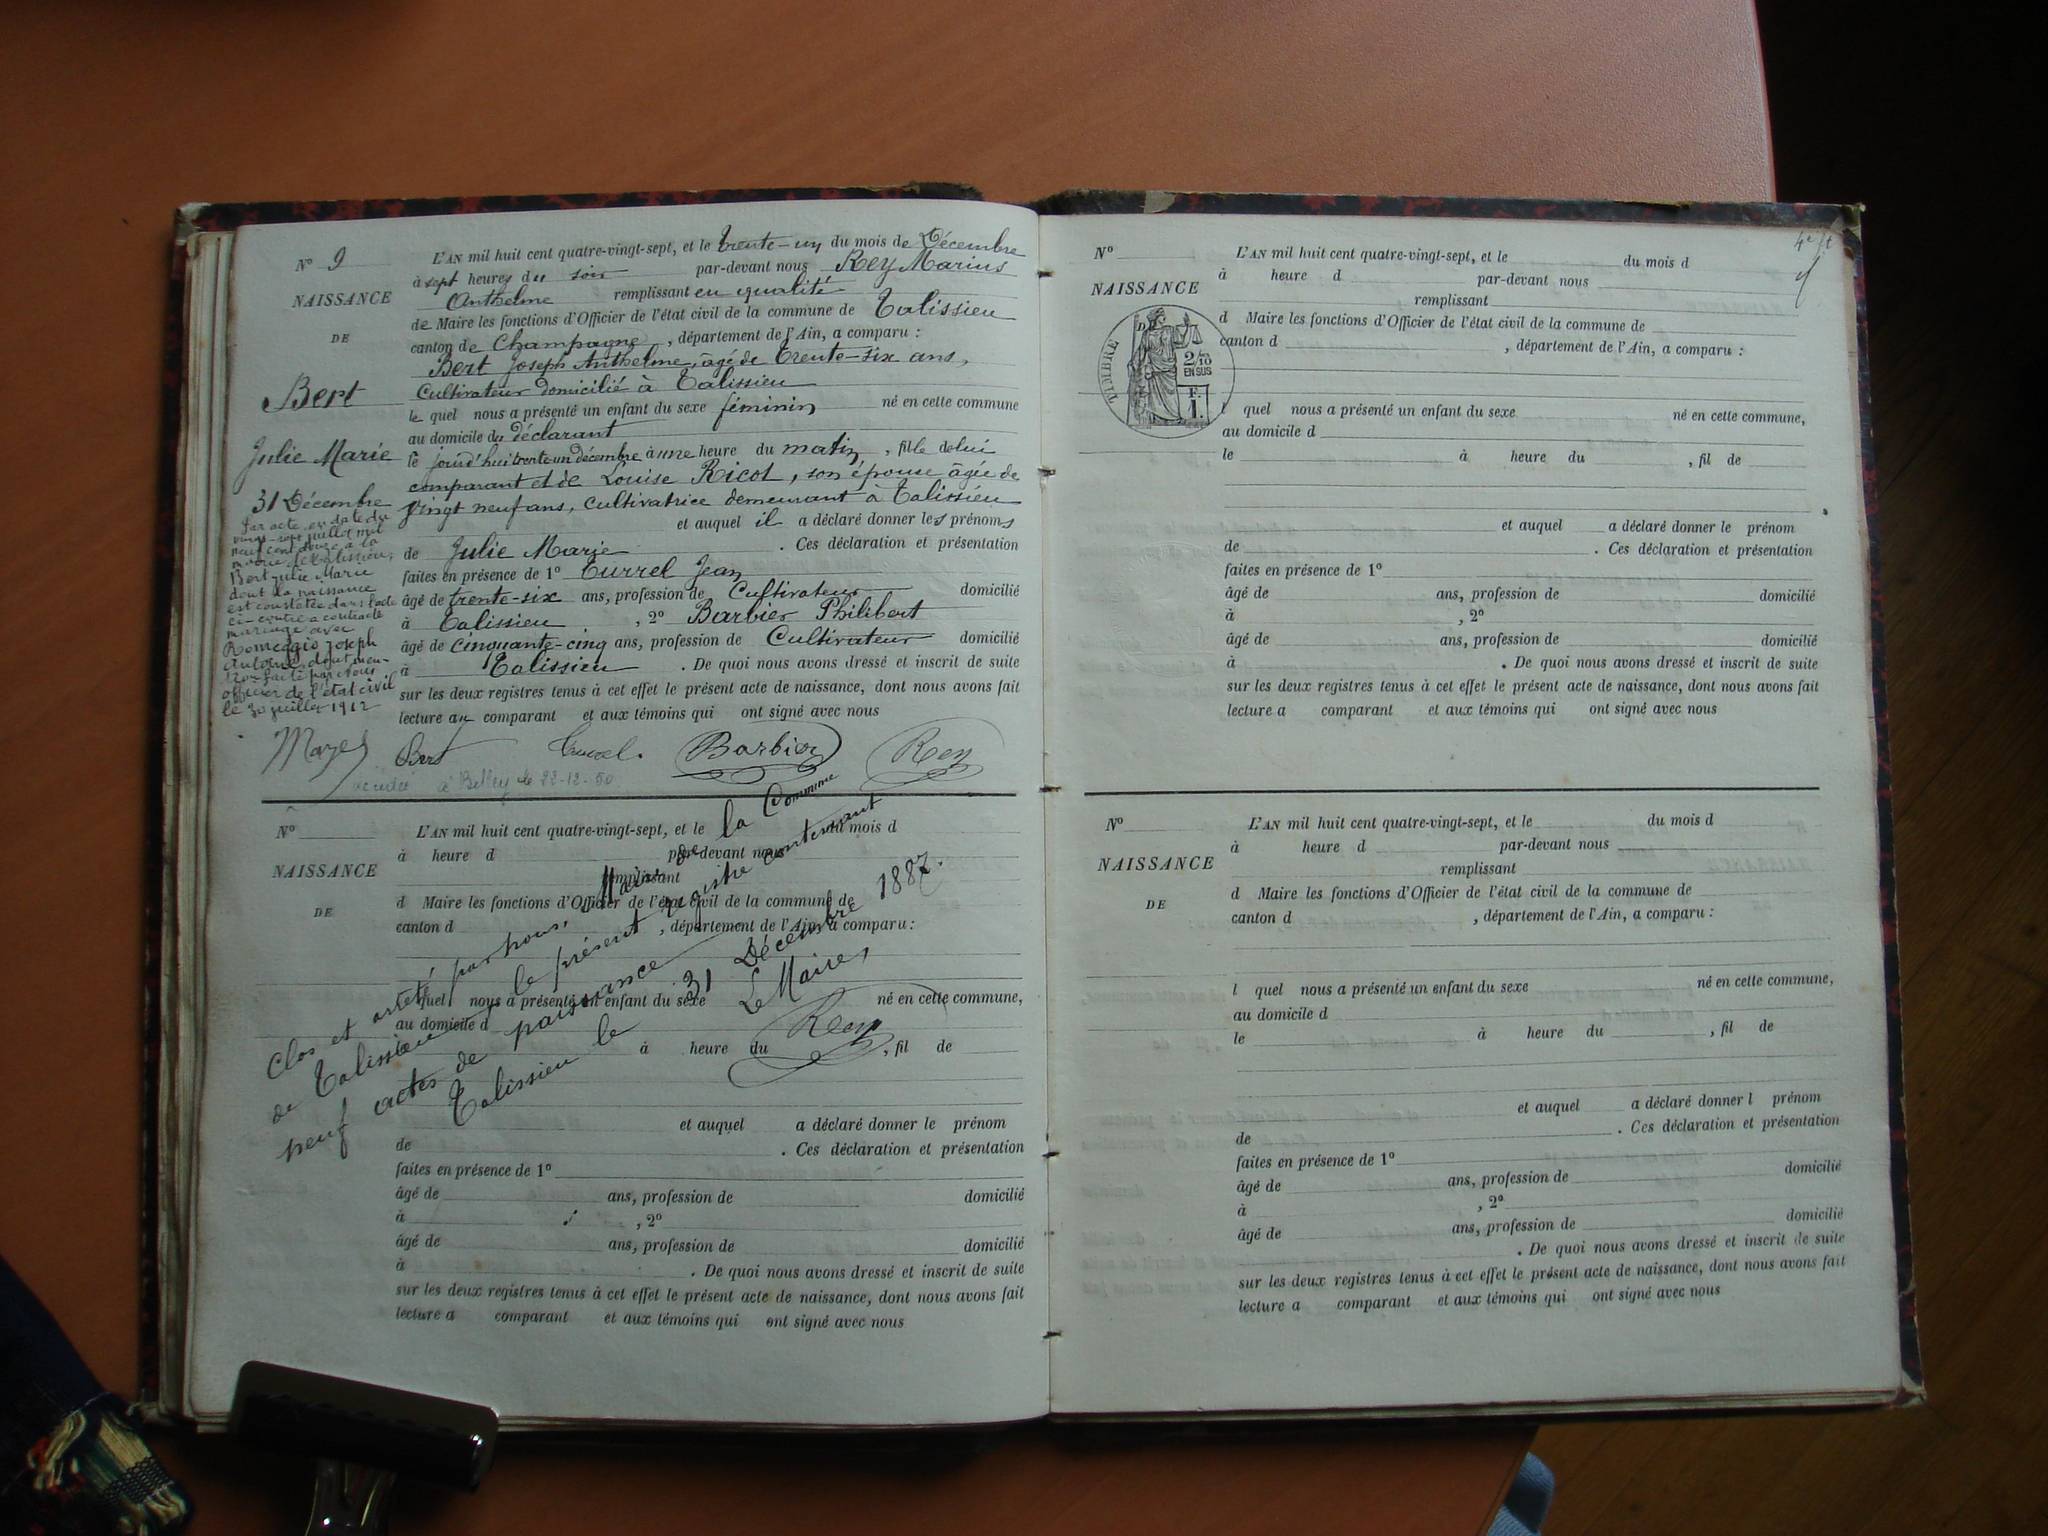 N° 9
NAISSANCE
DE
Bert
Julie Marie
31 Décembre
Par acte en date du
vingt-sept juillet mil
neuf cent douze à la
mairie de Talissieu,
Bert Julie Marie
dont la naissance
est constatée dans l'acte
ci-contre a contracté
mariage avec
Romeggio Joseph
Antoine dont men-
tion faite par Nous
officier de l'état civil
le 30 juillet 1912
L'AN mil huit cent quatre-vingt-sept, et le trente-un du mois de Décembre
à sept heures du soir par-devant nous Rey Marius
Anthelme remplissant en qualité
de Maire les fonctions d'Officier de l'état civil de la commune de Talissieu
canton de Champagne, département de l'Ain, a comparu :
Bert Joseph Anthelme, âgé de trente-six ans,
Cultivateur domicilié à Talissieu
le quel nous a présenté un enfant du sexe féminin né en cette commune
au domicile du déclarant
le jourd'hui trente un décembre à une heure du matin, fille de lui
comparant et de Louise Ricot, son épouse âgée de
vingt neuf ans, cultivatrice demeurant à Talissieu
et auquel il a déclaré donner les prénoms
de Julie Marie. Ces déclaration et présentation
faites en présence de 1° Turrel Jean
âgé de trente-six ans, profession de Cultivateur domicilié
à Talissieu, 2° Barbier Philibert
âgé de cinquante-cinq ans, profession de Cultivateur domicilié
à Talissieu. De quoi nous avons dressé et inscrit de suite
sur les deux registres tenus à cet effet le présent acte de naissance, dont nous avons fait
lecture au comparant et aux témoins qui ont signé avec nous
Bert Turrel Barbier Rey
décédée à Belley le 22-12-50
N°
NAISSANCE
DE
L'AN mil huit cent quatre-vingt-sept, et le du mois d
à heure d par-devant nous
remplissant
d Maire les fonctions d'Officier de l'état civil de la commune de
canton d , département de l'Ain, a comparu :
l quel nous a présenté un enfant du sexe né en cette commune,
au domicile d
à heure du , fil de
et auquel a déclaré donner le prénom
de . Ces déclaration et présentation
faites en présence de 1°
âgé de ans, profession de domicilié
à , 2°
âgé de ans, profession de domicilié
à . De quoi nous avons dressé et inscrit de suite
sur les deux registres tenus à cet effet le présent acte de naissance, dont nous avons fait
lecture a comparant et aux témoins qui ont signé avec nous
Clos et arrêté par nous, Maire de la Commune
de Talissieu le présent registre contenant
neuf actes de naissance
Talissieu le 31 Décembre 1887.
Le Maire,
Rey
N°
NAISSANCE
TIMBRE
2/10
EN SUS
F.
1.
L'AN mil huit cent quatre-vingt-sept, et le du mois d
à heure d par-devant nous
remplissant
d Maire les fonctions d'Officier de l'état civil de la commune de
canton d , département de l'Ain, a comparu :
l quel nous a présenté un enfant du sexe né en cette commune,
au domicile d
le à heure du , fil de
et auquel a déclaré donner le prénom
de . Ces déclaration et présentation
faites en présence de 1°
âgé de ans, profession de domicilié
à , 2°
âgé de ans, profession de domicilié
à . De quoi nous avons dressé et inscrit de suite
sur les deux registres tenus à cet effet le présent acte de naissance, dont nous avons fait
lecture a comparant et aux témoins qui ont signé avec nous
N°
NAISSANCE
DE
L'AN mil huit cent quatre-vingt-sept, et le du mois d
à heure d par-devant nous
remplissant
d Maire les fonctions d'Officier de l'état civil de la commune de
canton d , département de l'Ain, a comparu :
l quel nous a présenté un enfant du sexe né en cette commune,
au domicile d
le à heure du , fil de
et auquel a déclaré donner l prénom
de . Ces déclaration et présentation
faites en présence de 1°
âgé de ans, profession de domicilié
à , 2°
âgé de ans, profession de domicilié
. De quoi nous avons dressé et inscrit de suite
sur les deux registres tenus à cet effet le présent acte de naissance, dont nous avons fait
lecture a comparant et aux témoins qui ont signé avec nous